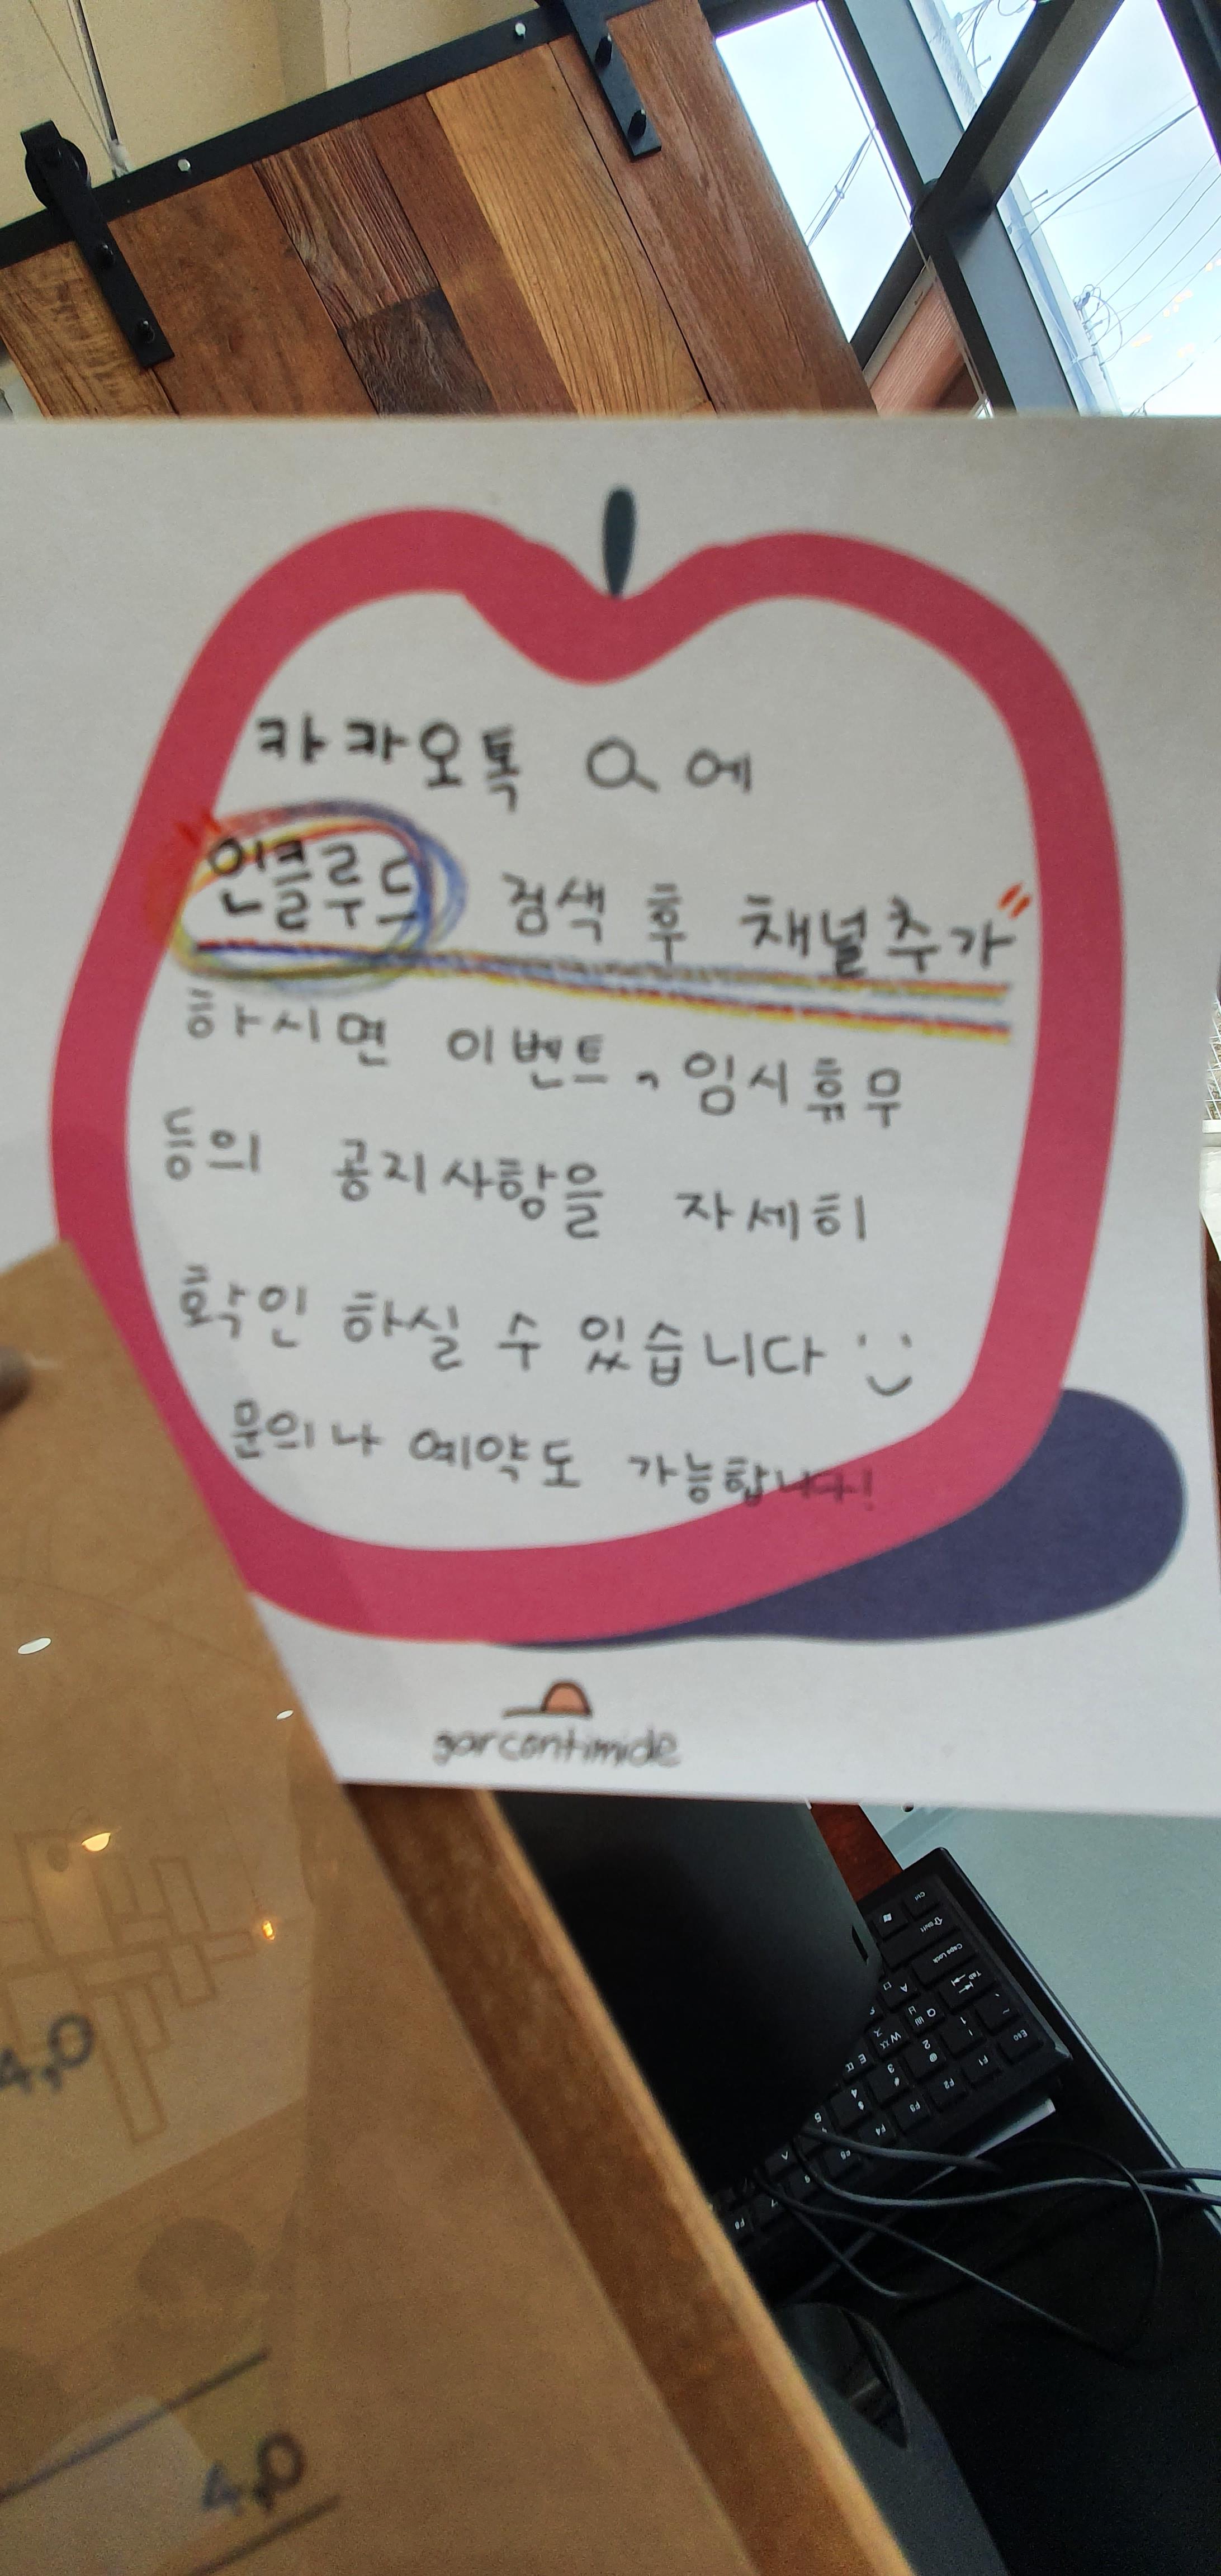 카카오톡 Q 에
"인클루드 검색 후 채널추가"
하시면 이벤트, 임시휴무
등의 공지사항을 자세히
확인 하실 수 있습니다 :)
문의나 예약도 가능합니다!
garcontimide
4,0
4,0
Ctrl
Shift
Caps Lock
Tab
Esc
F1
F2
F3
F4
F5